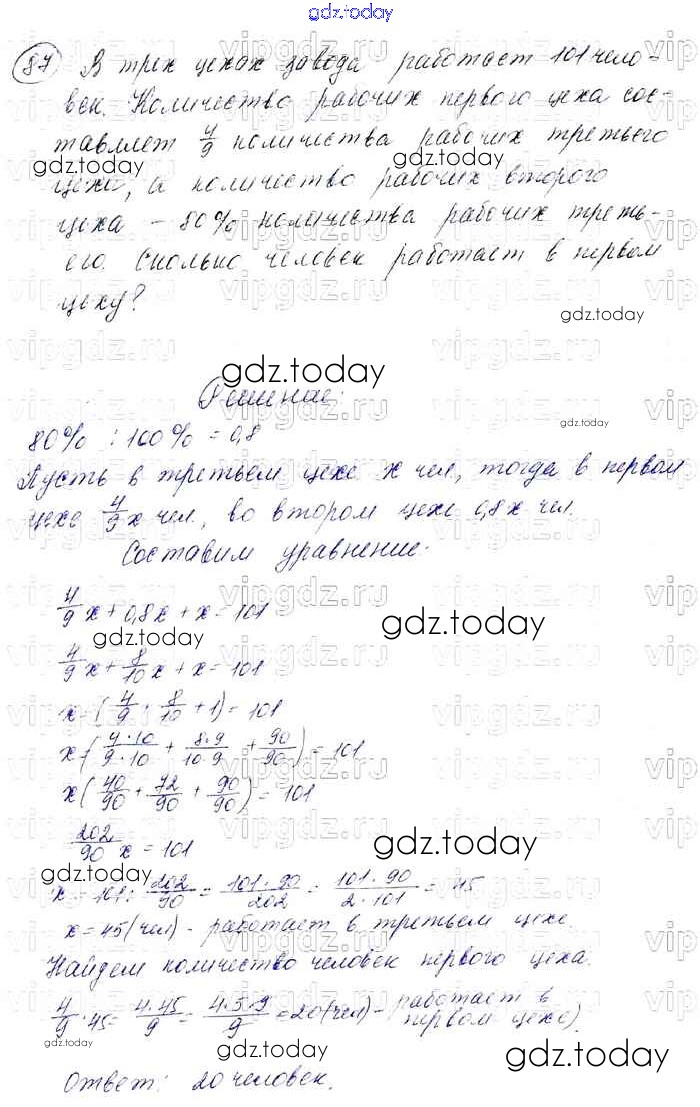 gdz.today
87) В трех цехах завода работает 101 чело-
век. Количество рабочих первого цеха сос-
тавляет 4/9 количества рабочих третьего
gdz.today gdz.today
цеха, а количество рабочих второго
цеха – 80% количества рабочих треть-
его. Сколько человек работает в первом
цеху?
gdz.today
gdz.today
Решение:
gdz.today
80% : 100% = 0,8
Пусть в третьем цехе x чел, тогда в первом
цехе 4/9 x чел., во втором цехе 0,8x чел.
Составим уравнение:
4/9 x + 0,8x + x = 101
gdz.today gdz.today
4/9 x + 8/10 x + x = 101
x · (4/9 + 8/10 + 1) = 101
x · (4·10/9·10 + 8·9/10·9 + 90/90) = 101
x (40/90 + 72/90 + 90/90) = 101
202/90 x = 101
gdz.today
gdz.today
x = 101 : 202/90 = 101·90/202 = 101·90/2·101 = 45
x = 45 (чел) - работает в третьем цехе.
Найдем количество человек первого цеха.
4/9 · 45 = 4·45/9 = 4·5·9/9 = 20 (чел) - (работает в
первом цехе).
gdz.today
gdz.today
gdz.today
Ответ: 20 человек.